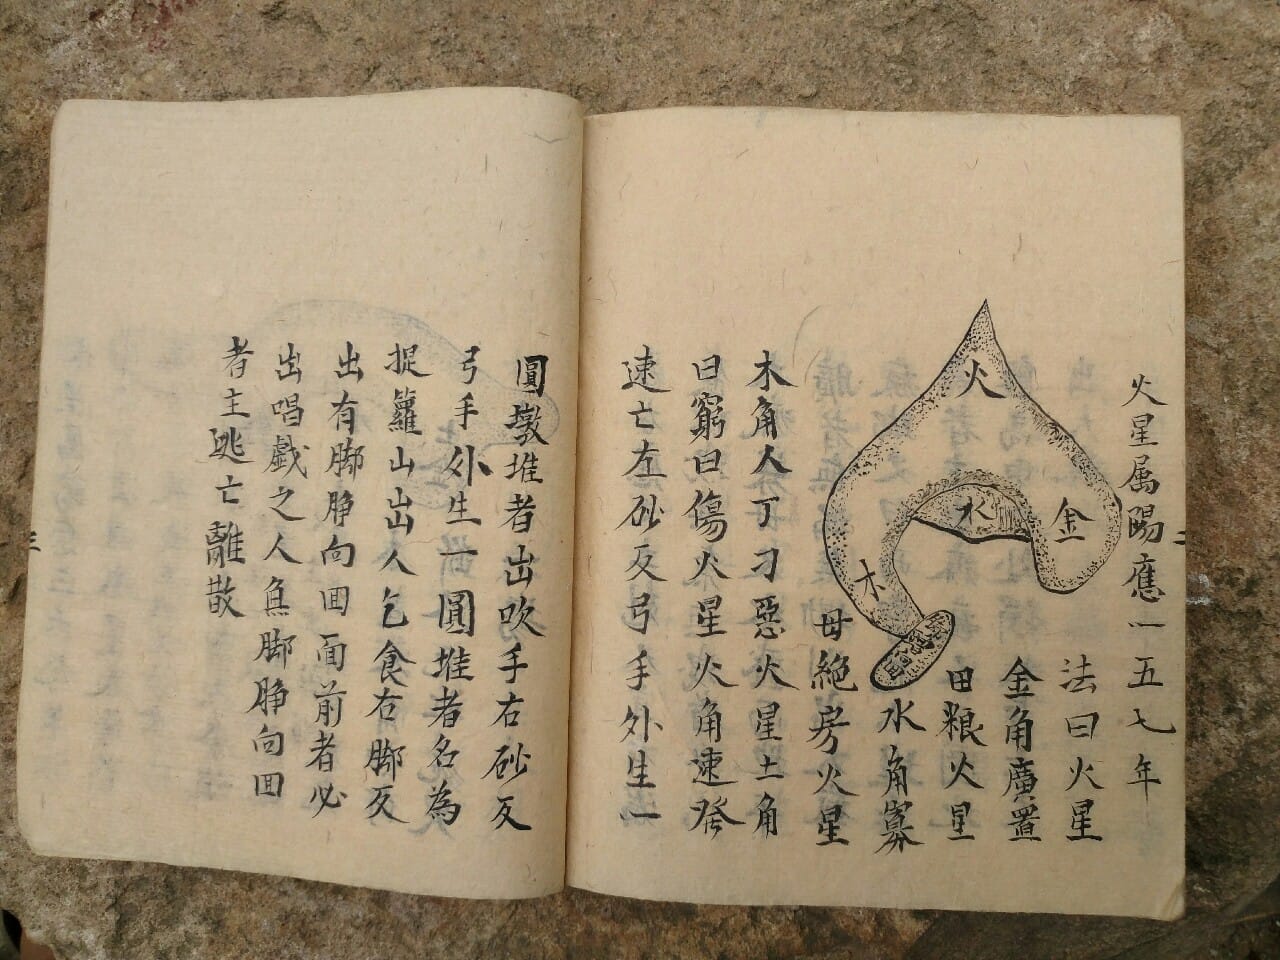 火星属陽應一五七年
法曰火星
金角廣置
田粮火星
水角寡
母絶房火星
木角人丁刁惡火星土角
曰窮曰傷火星火角速發
速亡左砂反弓手外生一
火
水
金
木
二
圓墩堆者出吹手右砂反
弓手外生一圓堆者名為
捉籮山出人乞食右脚反
出有脚向回面前者必
出唱戲之人魚脚向回
者主逃亡離散
三